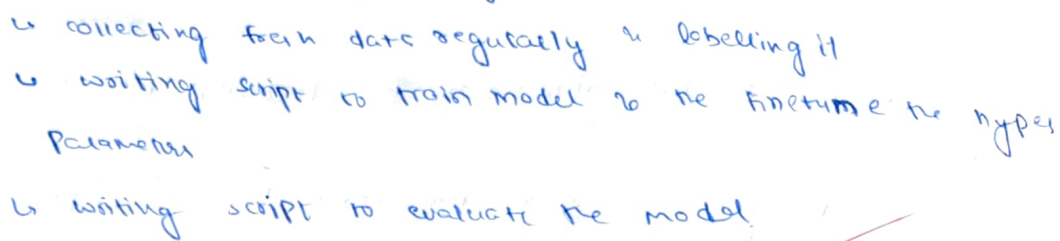 ↳ collecting fresh data regularly & labelling it
↳ writing script to train model to the finetune the hyper
Parameters
↳ writing script to evaluate the model.